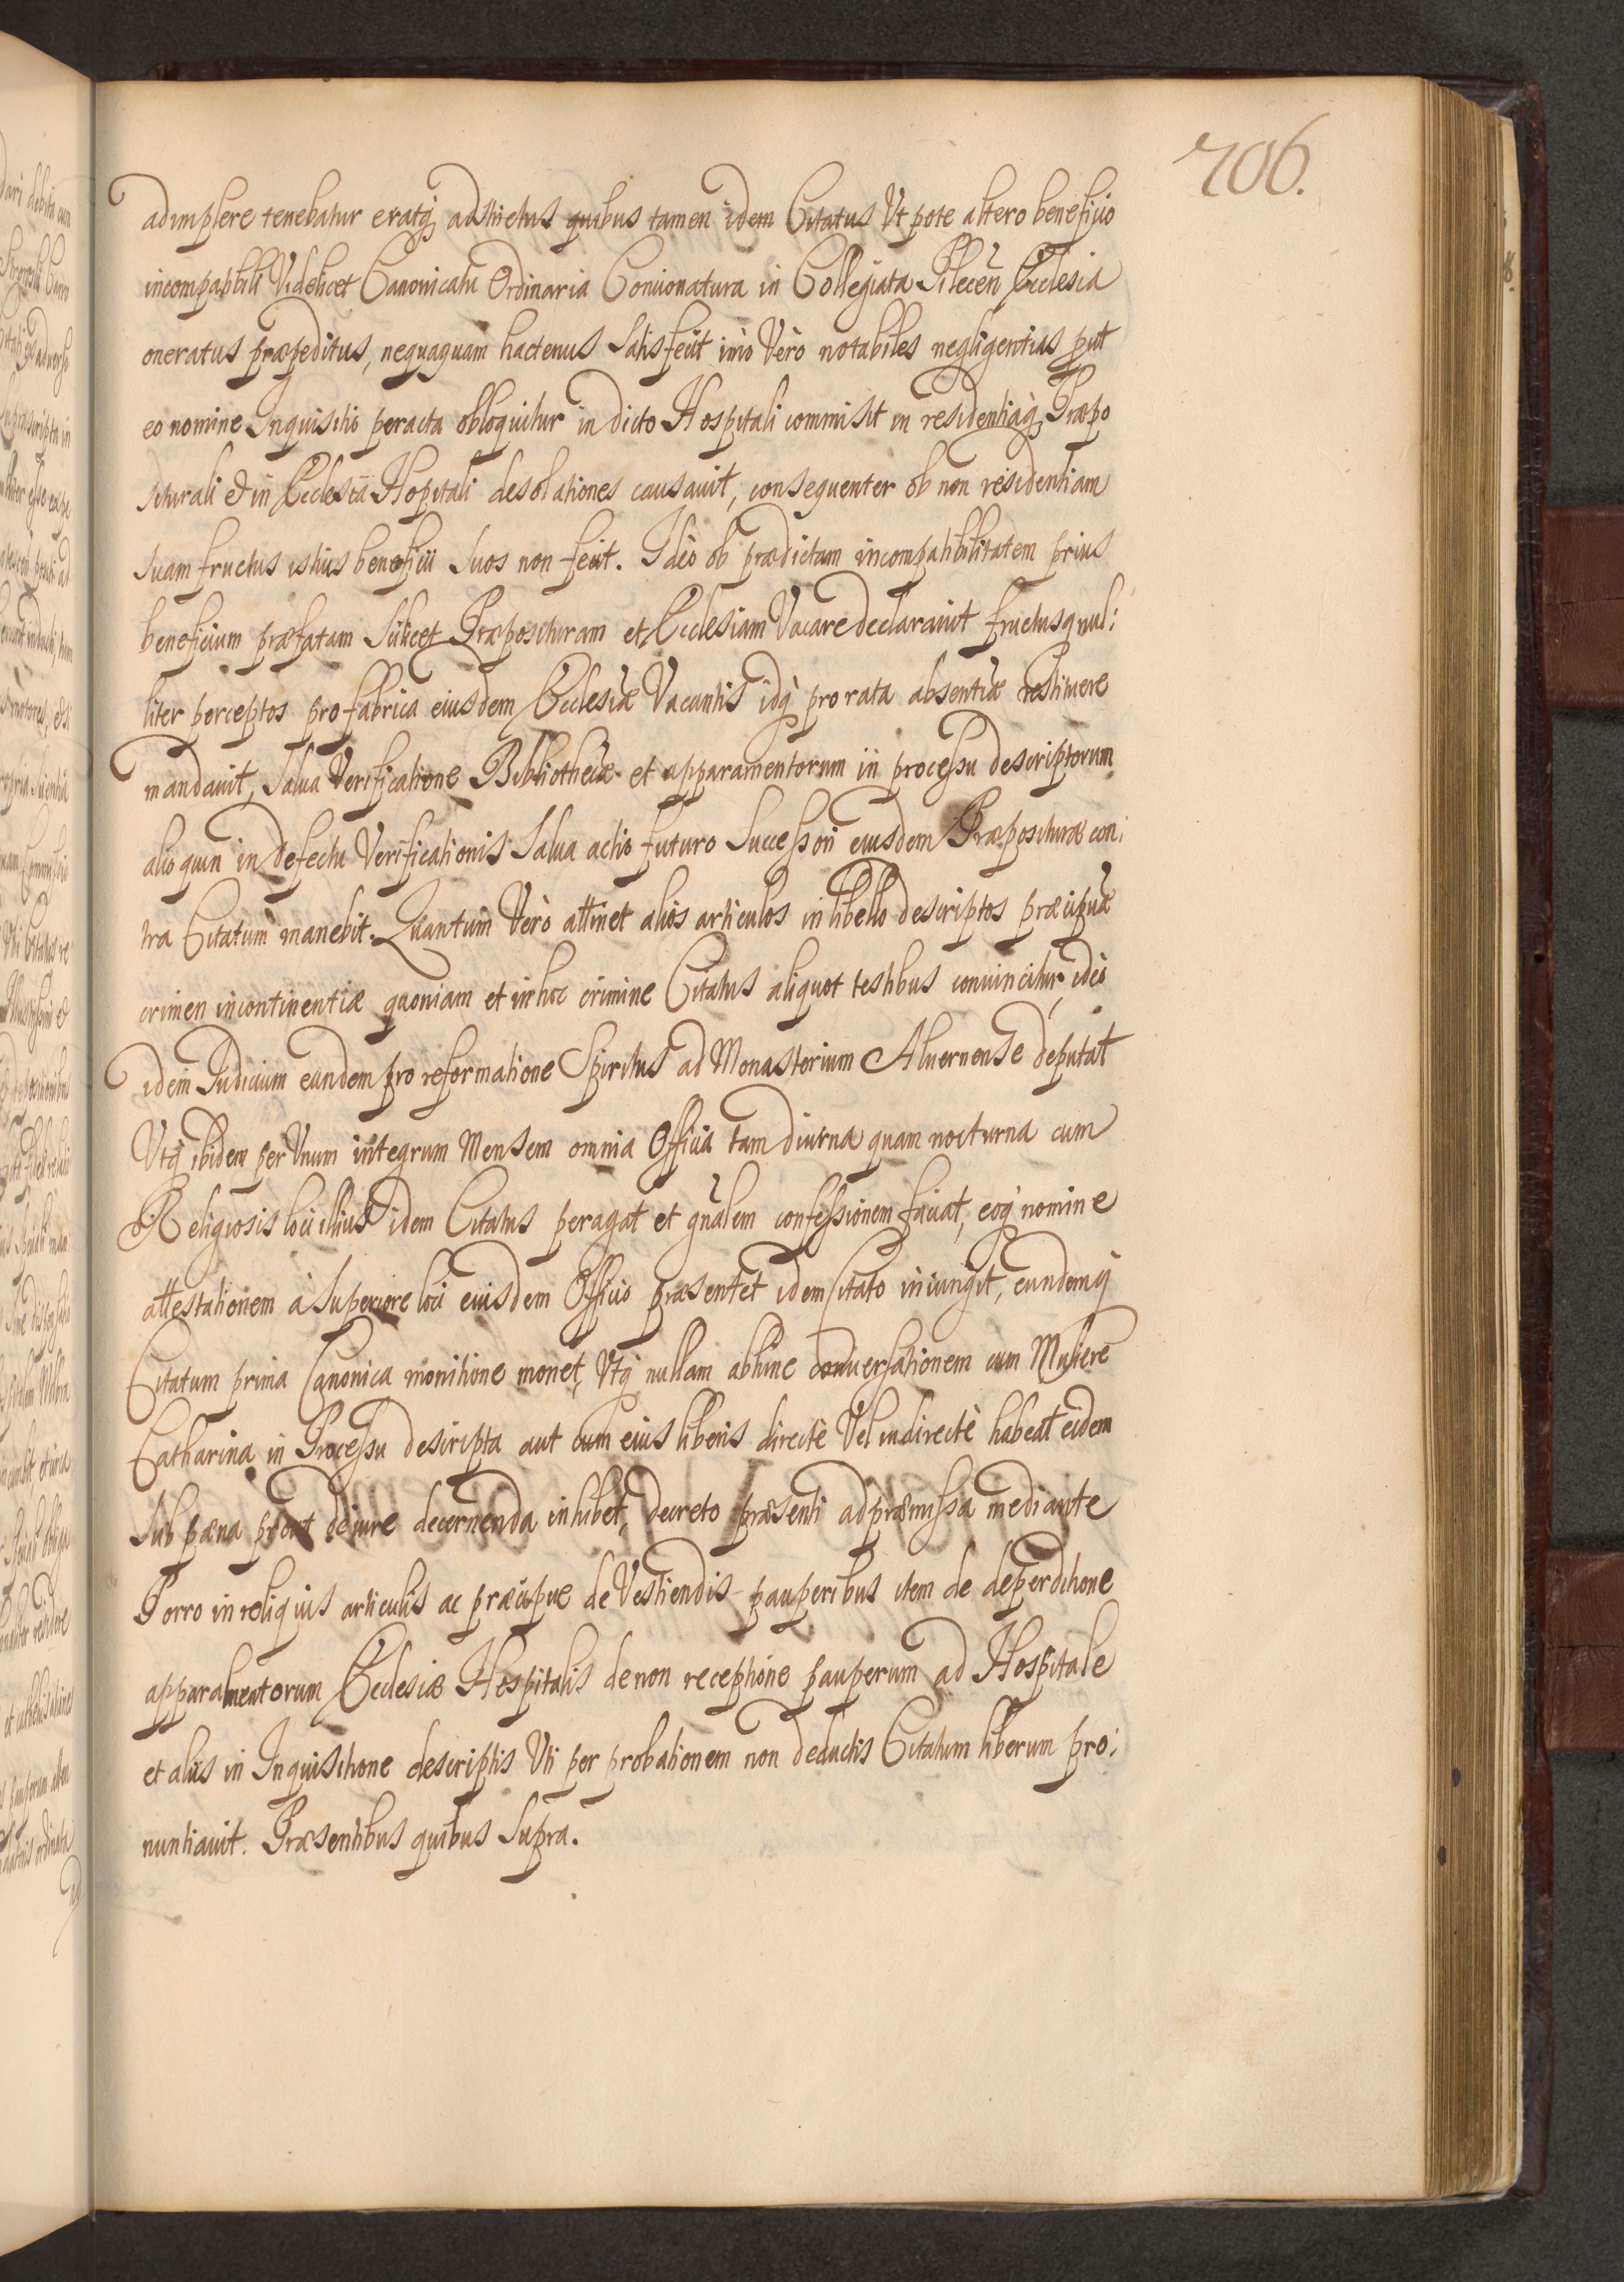 706.
adimplere tenebatur eratq adstrictus quibus tamen idem Citatus Vt pote altero beneficio
incompatibili Videlicet Canonicatu Ordinaria Concionatura in Collegiata Pilecen Ecclesia
oneratus præpeditus, nequaquam hactenus Satisfecit imo Vero notabiles negligentias put
eo nomine Inquisitio peracta obloquitur in dicto Hospitali commisit in residentiaq Præpo
siturali & in Ecclesia Hopitali desolationes causauit, consequenter ob non residentiam
suam fructus istius beneficii Suos non fecit. Ideo ob prædictam incompatibilitatem prius
beneficium præfatam Scilicet Præposituram et Ecclesiam Vacare declarauit fructusq nul:
liter perceptos pro fabrica eiusdem Ecclesiæ Vacantis idq pro rata absentiæ restituere
mandauit, Salua Verificatione Bibliothecæ et apparamentorum in processu descriptorum
alioquin in defectu Verificationis Salua actio futuro Successori eiusdem Præposituræ con:
tra Citatum manebit. Quantum Vero attinet alios articulos in libello descriptos præcipue
crimen incontinentiæ quoniam et in hoc crimine Citatus aliquot testibus conuincitur, ideo
idem Iudicium eundem pro reformatione Spiritus ad Monasterium Aluernense deputat
Vtq ibidem per Vnum integrum Mensem omnia Officia tam diurna quam nocturna cum
Religiosis loci illius idem Citatus peragat et gnalem confessionem faciat, eoq nomine
attestationem a Superiore loci eiusdem Officio præsentet idem Citato iniungit, eundemq
Citatum prima Canonica monitione monet, Vtq nullam abhinc conuersationem cum Muliere
Catharina in Processu descripta aut cum eius liberis directe Vel indirecte habeat eidem
Sub pæna prout de iure decernenda inhibet, decreto præsenti ad præmissa mediante
Porro in reliquis articulis ac præcipue de Vestiendis pauperibus item de deperditione
apparamentorum Ecclesiæ Hospitalis de non receptione pauperum ad Hospitale
et aliis in Inquisitione descriptis Vti per probationem non deductis Citatum liberum pro:
nuntiauit. Præsentibus quibus Supra.